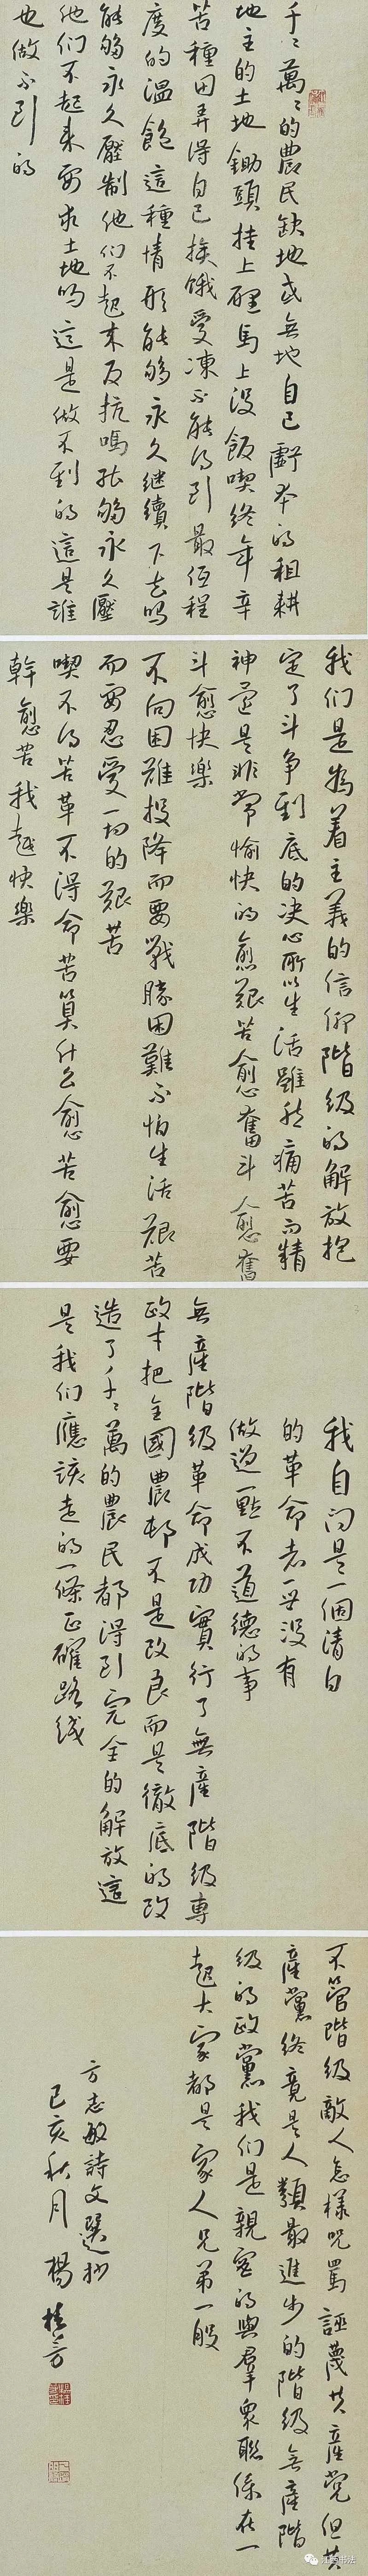 千々萬々的農民缺地或無地自己虧本的租耕
地主的土地鋤頭挂上壁馬上沒飯喫終年辛
苦種田弄得自己挨饿受凍不能得到最低程
度的溫飽這種情形能够永久继續下去吗
能够永久壓制他们不起来反抗嗎能够永久壓
他们不起来要求土地吗這是做不到的這是誰
也做不到的
我们是为着主義的信仰階级的解放抱
定了斗争到底的决心所以生活雖然痛苦而精
神還是非常愉快的愈艱苦愈奮斗愈奮
斗愈快樂
不向困難投降而要戰勝困難不怕生活艱苦
而要忍受一切的艱苦
喫不得苦革不得命苦算什么愈苦愈要
幹愈苦我越快樂
我自问是一個清白
的革命者一生没有
做過一點不道德的事
無產階级革命成功實行了無產階级專
政才把全國農邨不是改良而是徹底的改
造了千々萬的農民都得到完全的解放這
是我们應該走的一條正確路线
不管階级敵人怎樣咒罵誣蔑共產党但共
產黨终竟是人類最進步的階级無產階
级的政黨我们是親密的與羣衆聯係在一
起大家都是家人兄弟一般
方志敏詩文選抄
己亥秋月 楊桂芳
江西书法